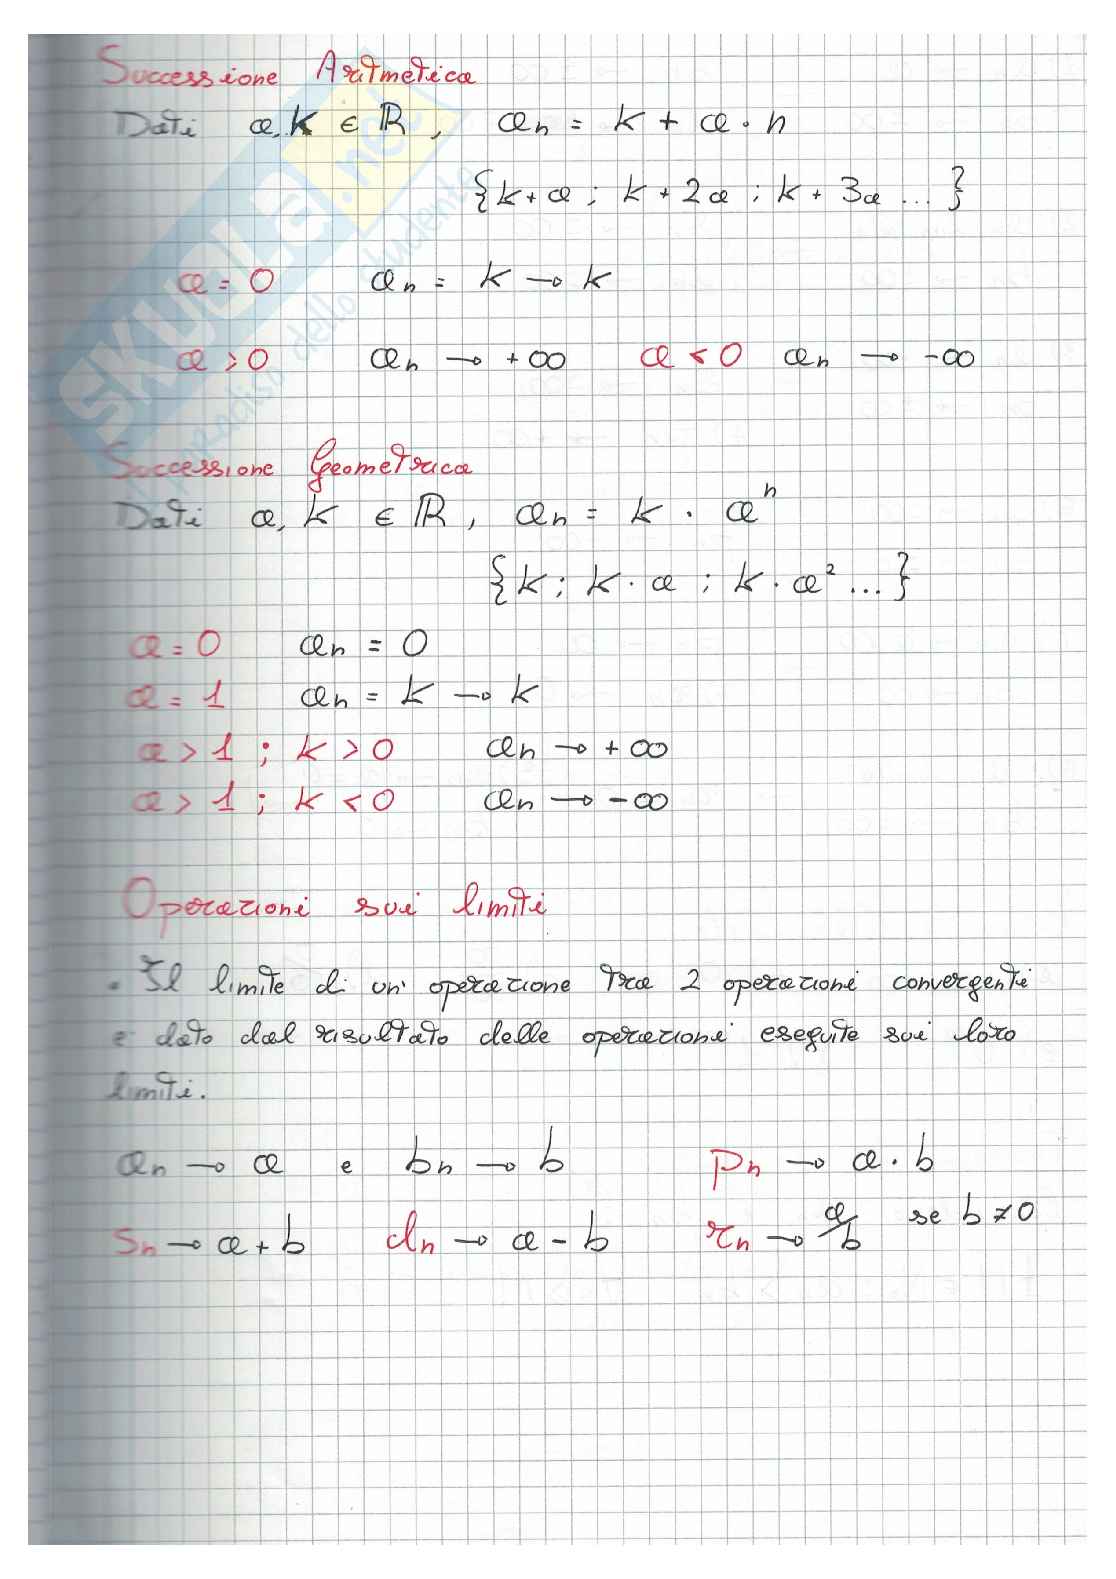 Successione Aritmetica
Dati a, k ∈ ℝ, an = k + a · n
{k+a ; k+2a ; k+3a ...}
a = 0 an = k → k
a > 0 an → +∞ a < 0 an → -∞
Successione Geometrica
Dati a, k ∈ ℝ, an = k · aⁿ
{k ; k · a ; k · a² ...}
a = 0 an = 0
a = 1 an = k → k
a > 1 ; k > 0 an → +∞
a > 1 ; k < 0 an → -∞
Operazioni sui limiti
• Il limite di un' operazione tra 2 operazioni convergenti
è dato dal risultato delle operazioni eseguite sui loro
limiti.
an → a e bn → b pn → a · b
sn → a + b dn → a - b rn → a/b se b ≠ 0
SKUOLA.net
il paradiso dello studente